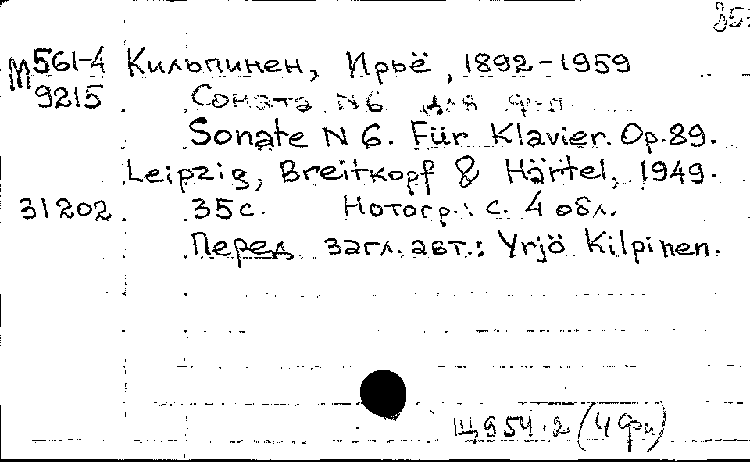 М561-4 Кильпинен, Ирьё, 1892-1959
9215 Соната N6 для ф-п
Sonate N 6. Für Klavier. Op.89.
Leipzig, Breitkopf & Härtel, 1949.
31202 35с. Нотогр.: с. 4 обл.
Перед загл. авт.: Yrjö Kilpinen.
Щ954.2 (4 Фи)